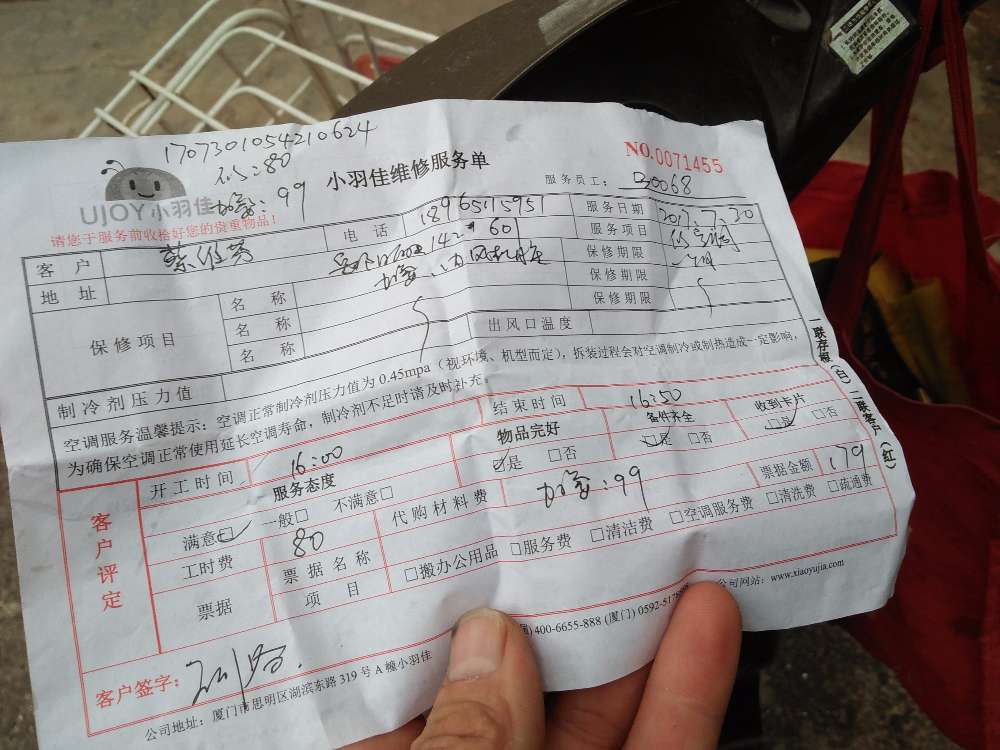 1707301054210624
NO.0071455
:80
:99
小羽佳维修服务单
服务员工: B0068
UJOY小羽佳
请您于服务前收拾好您的贵重物品!
客户 电话 18965115951 服务日期 2017.7.30
地址 142 60 服务项目
保修项目 名称 保修期限
名称 保修期限
名称 保修期限
制冷剂压力值 出风口温度
空调服务温馨提示: 空调正常制冷剂压力值为 0.45mpa (视环境、机型而定), 拆装过程会对空调制冷或制热造成一定影响,
为确保空调正常使用延长空调寿命, 制冷剂不足时请及时补充。
一联存根(白) 二联客户(红)
客户评定
开工时间 16:00 结束时间 16:50
服务态度 物品完好 备件齐全 收到卡片
满意□ 一般□ 不满意□ □是 □否 □是 □否 □是 □否
工时费 80 代购材料费 :99 票据金额 179
票据 票据名称项目 □搬办公用品 □服务费 □清洁费 □空调服务费 □清洗费 □疏通费
客户签字:
公司地址: 厦门市思明区湖滨东路 319 号 A 幢小羽佳 400-6655-888 (厦门) 0592-517 公司网站: www.xiaoyujia.com